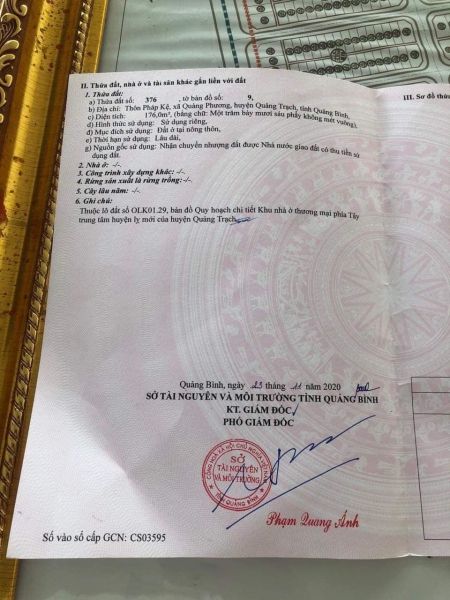 II. Thửa đất, nhà ở và tài sản khác gắn liền với đất
1. Thửa đất:
a) Thửa đất số: 376 , tờ bản đồ số: 9,
b) Địa chỉ: Thôn Pháp Kệ, xã Quảng Phương, huyện Quảng Trạch, tỉnh Quảng Bình,
c) Diện tích: 176,0m², (bằng chữ: Một trăm bảy mươi sáu phẩy không mét vuông),
d) Hình thức sử dụng: Sử dụng riêng,
đ) Mục đích sử dụng: Đất ở tại nông thôn,
e) Thời hạn sử dụng: Lâu dài,
g) Nguồn gốc sử dụng: Nhận chuyển nhượng đất được Nhà nước giao đất có thu tiền sử
dụng đất.
2. Nhà ở: -/-.
3. Công trình xây dựng khác: -/-.
4. Rừng sản xuất là rừng trồng: -/-.
5. Cây lâu năm: -/-.
6. Ghi chú:
Thuộc lô đất số OLK01.29, bản đồ Quy hoạch chi tiết Khu nhà ở thương mại phía Tây
trung tâm huyện lỵ mới của huyện Quảng Trạch.
III. Sơ đồ thửa
Quảng Bình, ngày 23 tháng 11 năm 2020
SỞ TÀI NGUYÊN VÀ MÔI TRƯỜNG TỈNH QUẢNG BÌNH
KT. GIÁM ĐỐC
PHÓ GIÁM ĐỐC
CỘNG HÒA XÃ HỘI CHỦ NGHĨA VIỆT NAM
SỞ
TÀI NGUYÊN
VÀ MÔI TRƯỜNG
TỈNH QUẢNG BÌNH
Phạm Quang Ánh
Số vào sổ cấp GCN: CS03595